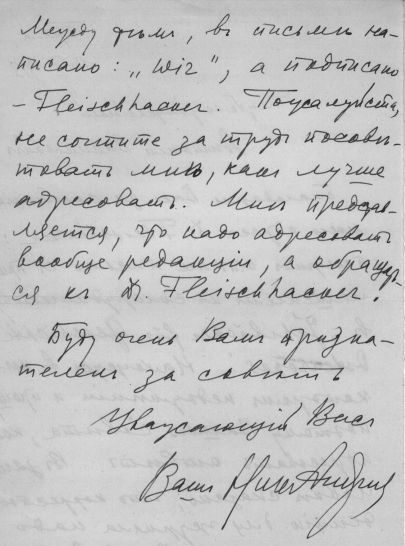 Между тѣмъ, въ письмѣ на-
писано: „Wir", а подписано
– Fleischhacker. Пожалуйста,
не сочтите за трудъ посовѣ-
товать мнѣ, какъ лучше
адресовать. Мнѣ представ-
ляется, что надо адресовать
вообще редакціи, а обращат-
ся къ Dr. Fleischhacker.
Буду очень Вамъ призна-
теленъ за совѣтъ
Уважающій Васъ
Вашъ